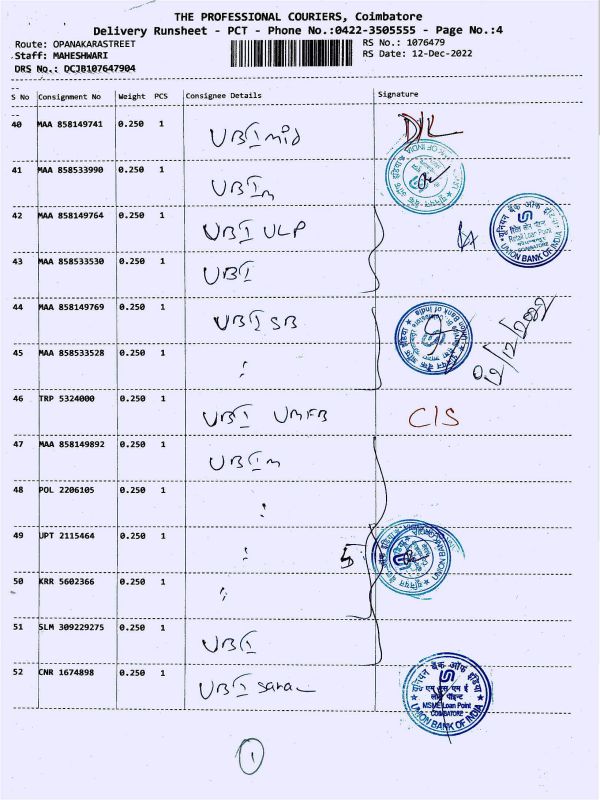 THE PROFESSIONAL COURIERS, Coimbatore
Delivery Runsheet - PCT - Phone No.:0422-3505555 - Page No.:4
Route: OPANAKARASTREET RS No.: 1076479
Staff: MAHESHWARI RS Date: 12-Dec-2022
DRS No.: DCJB107647904
S No Consignment No Weight PCS Consignee Details Signature
40 MAA 858149741 0.250 1 UBI mid D/L
41 MAA 858533990 0.250 1 UBI m
42 MAA 858149764 0.250 1 UBI ULP
43 MAA 858533530 0.250 1 UBI
44 MAA 858149769 0.250 1 UBI SB
45 MAA 858533528 0.250 1
46 TRP 5324000 0.250 1 UBI UMFB CIS
47 MAA 858149892 0.250 1 UBI m
48 POL 2206105 0.250 1
49 UPT 2115464 0.250 1 5
50 KRR 5602366 0.250 1
51 SLM 309229275 0.250 1 UBI
52 CNR 1674898 0.250 1 UBI
यूनियन बैंक ऑफ इंडिया
Retail Loan Point
UNION BANK OF INDIA
यूनियन बैंक ऑफ इंडिया
एम एस एम ई
लोन पॉइंट
MSME Loan Point
COIMBATORE
UNION BANK OF INDIA
1